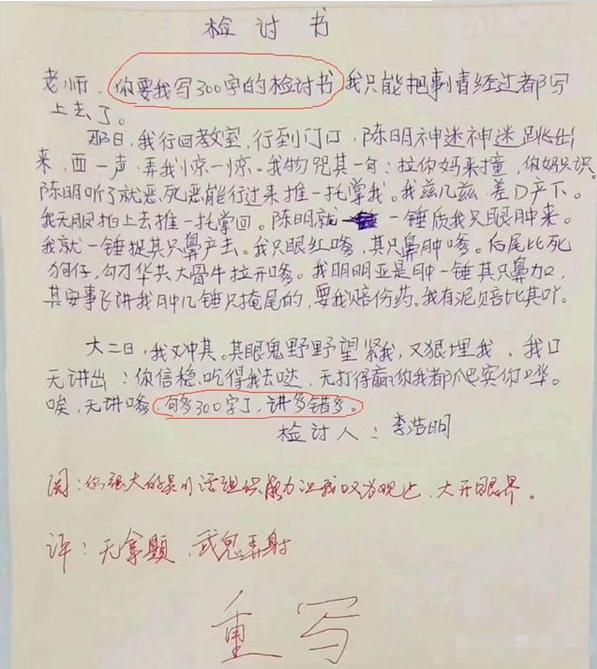 检讨书
老师，你要我写300字的检讨书我只能把事情经过都写
上去了。
那日，我行回教室，行到门口，陈明神迷神迷跳出
来，西一声，弄我惊一惊。我物咒其一句：拉你妈来撞，你妈识识。
陈明听了就恶死恶能行过来推一托掌我。我兹几兹差口产下。
我无服拍上去推一托掌回。陈明就一锤质我只眼肿来。
我就一锤捉其只鼻产去。我只眼红嗲，其只鼻肿嗲。后尾比死
狗仔，勾刀华共大骨牛拉开嗲。我明明亚是日中一锤其只鼻加口，
其安事飞讲我日中几锤只掩尾的，要我赔份药。我有泥赔比其吖。
大二日，我又冲其。其眼鬼野野望紧我，又狠埋我，我口
无讲出：你信稳吃得我去哒，无打得赢你我都爬实你哗。
唉，无讲嗲，句多300字了，讲多错多。
检讨人：李浩明
阅：你强大的吴川话组织能力让我叹为观止，大开眼界。
评：无拿题，武鬼弄射
重写